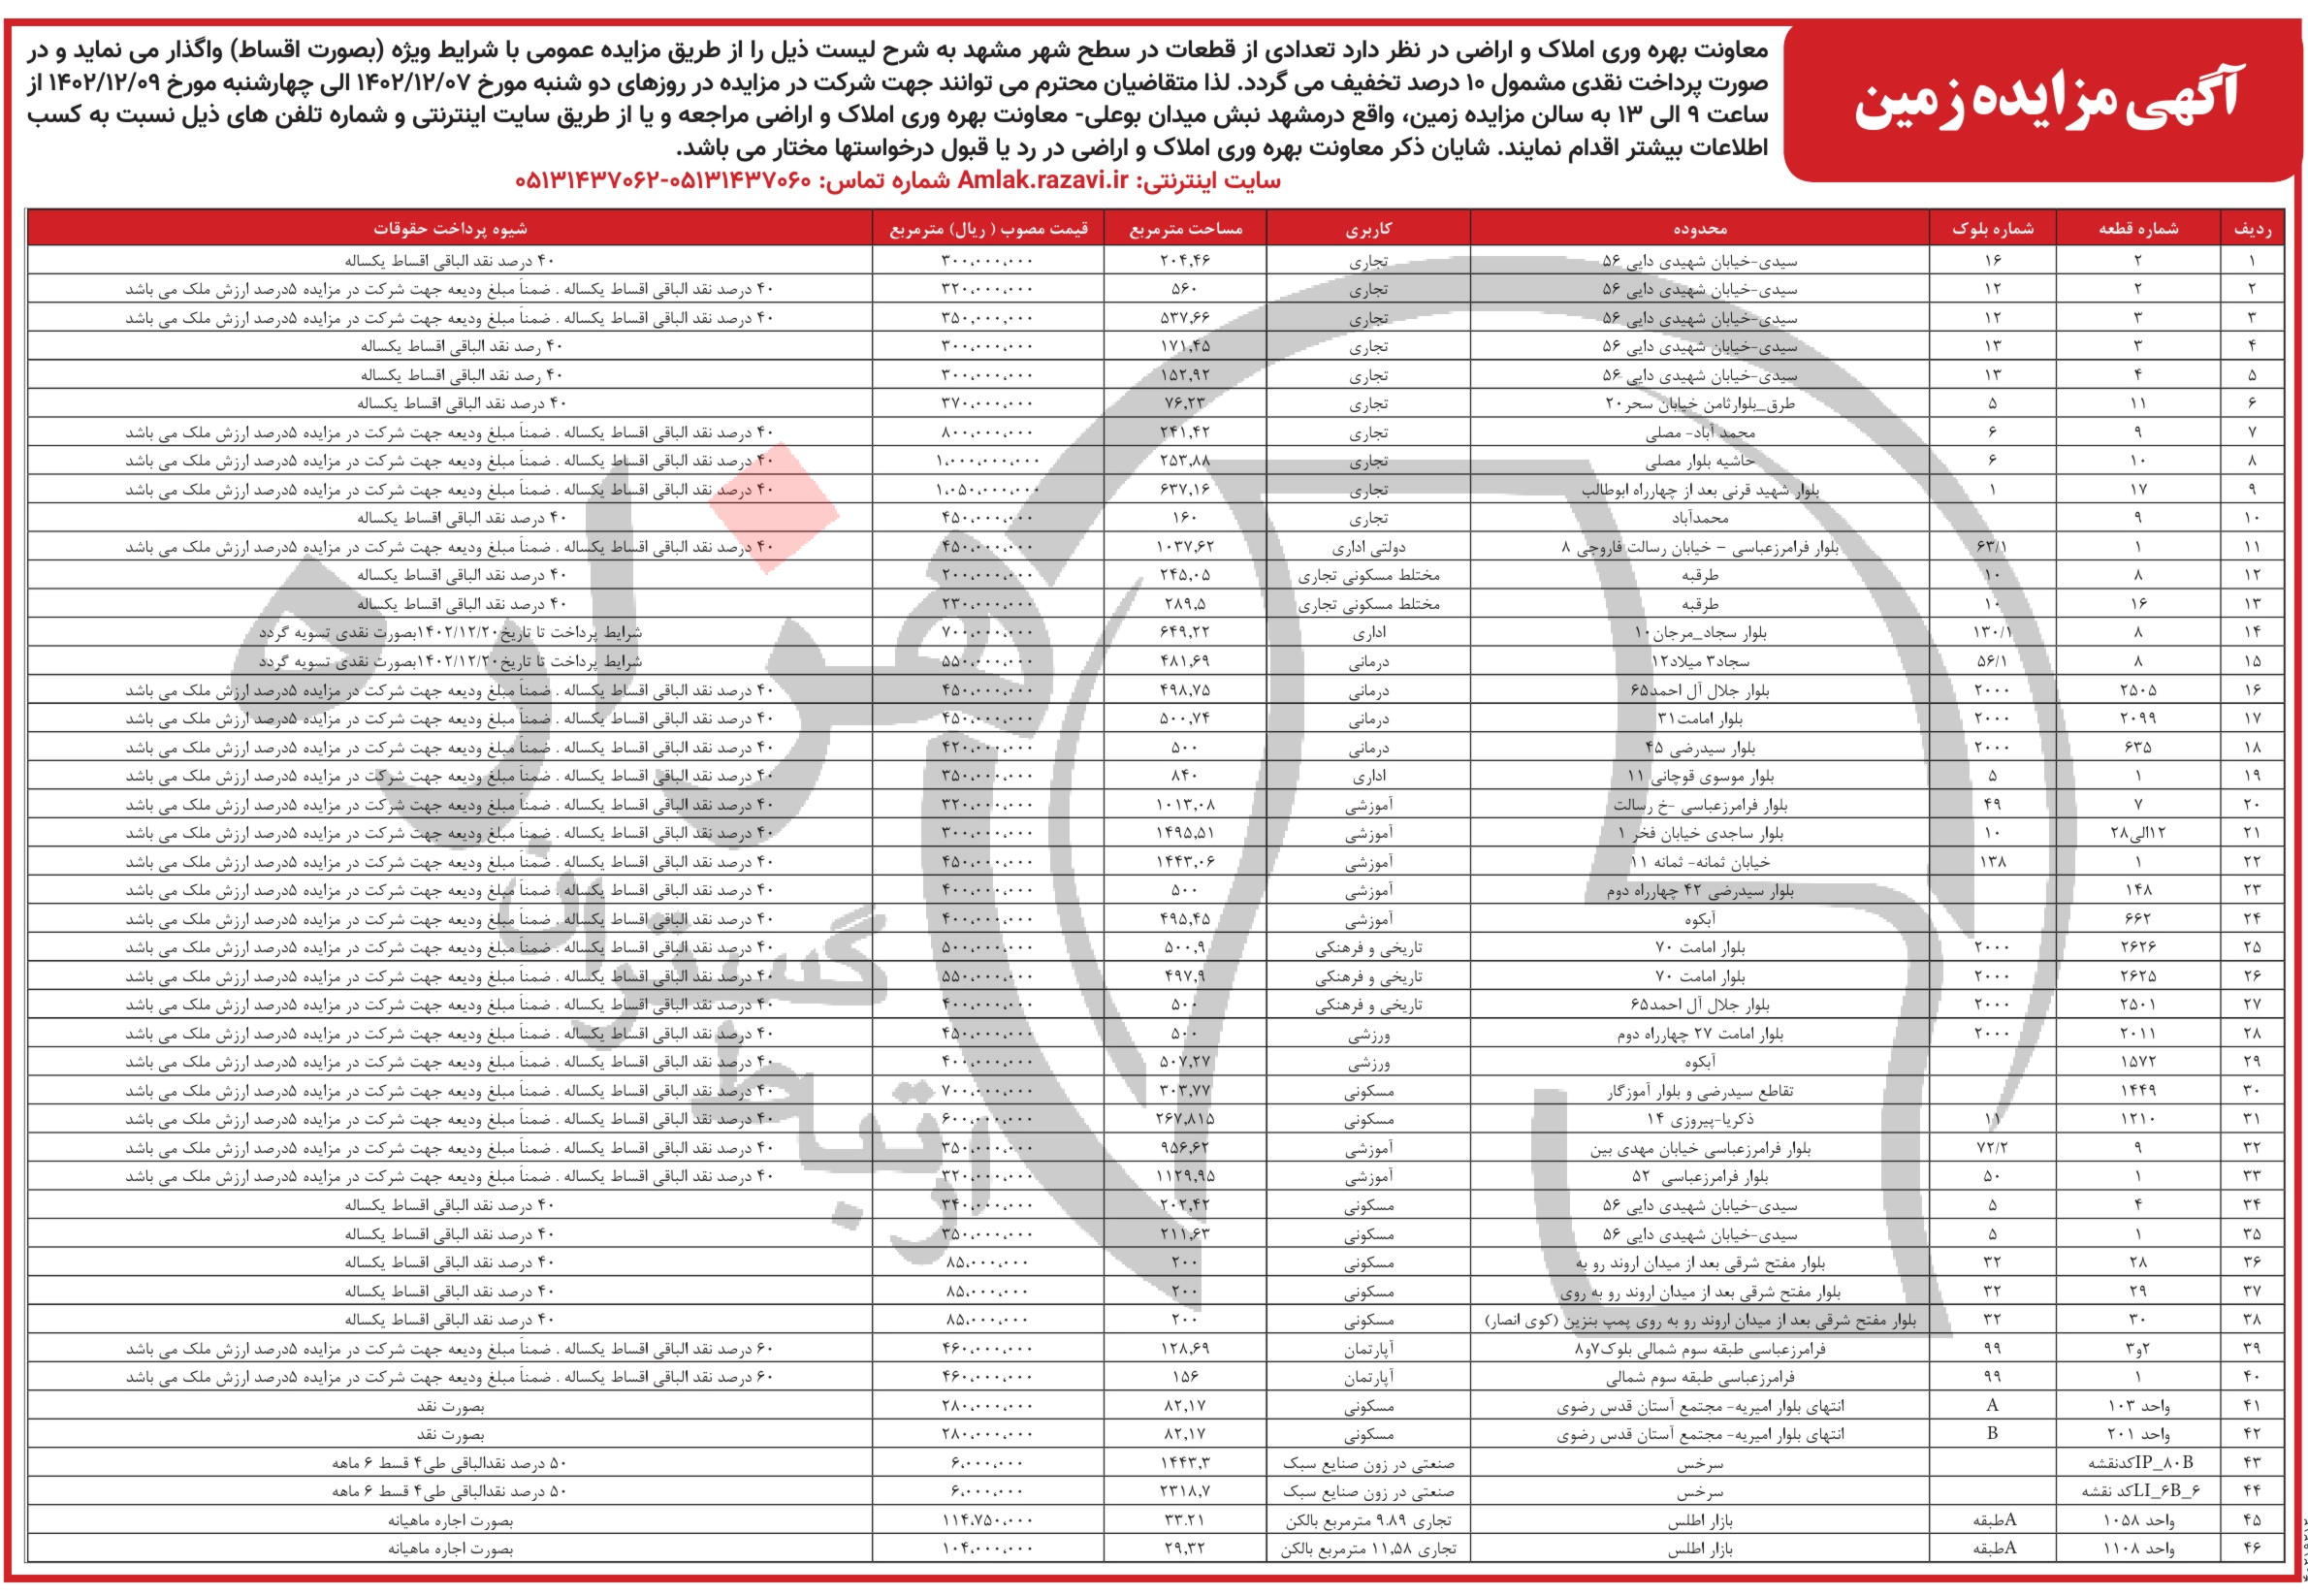 آگهی مزایده زمین
معاونت بهره وری املاک و اراضی در نظر دارد تعدادی از قطعات در سطح شهر مشهد به شرح لیست ذیل را از طریق مزایده عمومی با شرایط ویژه (بصورت اقساط) واگذار می نماید و در
صورت پرداخت نقدی مشمول ۱۰ درصد تخفیف می گردد. لذا متقاضیان محترم می توانند جهت شرکت در مزایده در روزهای دو شنبه مورخ ۱۴۰۲/۱۲/۰۷ الی چهارشنبه مورخ ۱۴۰۲/۱۲/۰۹ از
ساعت ۹ الی ۱۳ به سالن مزایده زمین، واقع درمشهد نبش میدان بوعلی- معاونت بهره وری املاک و اراضی مراجعه و یا از طریق سایت اینترنتی و شماره تلفن های ذیل نسبت به کسب
اطلاعات بیشتر اقدام نمایند. شایان ذکر معاونت بهره وری املاک و اراضی در رد یا قبول درخواستها مختار می باشد.
سایت اینترنتی: Amlak.razavi.ir شماره تماس: ۰۵۱۳۱۴۳۷۰۶۰-۰۵۱۳۱۴۳۷۰۶۲
ردیف شماره قطعه شماره بلوک محدوده کاربری مساحت مترمربع قیمت مصوب ( ریال) مترمربع شیوه پرداخت حقوقات
۱ ۲ ۱۶ سیدی-خیابان شهیدی دایی ۵۶ تجاری ۲۰۴,۴۶ ۳۰۰,۰۰۰,۰۰۰ ۴۰ درصد نقد الباقی اقساط یکساله
۲ ۲ ۱۲ سیدی-خیابان شهیدی دایی ۵۶ تجاری ۵۶۰ ۳۲۰,۰۰۰,۰۰۰ ۴۰ درصد نقد الباقی اقساط یکساله . ضمناً مبلغ ودیعه جهت شرکت در مزایده ۵درصد ارزش ملک می باشد
۳ ۳ ۱۲ سیدی-خیابان شهیدی دایی ۵۶ تجاری ۵۳۷,۶۶ ۳۵۰,۰۰۰,۰۰۰ ۴۰ درصد نقد الباقی اقساط یکساله . ضمناً مبلغ ودیعه جهت شرکت در مزایده ۵درصد ارزش ملک می باشد
۴ ۳ ۱۳ سیدی-خیابان شهیدی دایی ۵۶ تجاری ۱۷۱,۴۵ ۳۰۰,۰۰۰,۰۰۰ ۴۰ رصد نقد الباقی اقساط یکساله
۵ ۴ ۱۳ سیدی-خیابان شهیدی دایی ۵۶ تجاری ۱۵۲,۹۲ ۳۰۰,۰۰۰,۰۰۰ ۴۰ رصد نقد الباقی اقساط یکساله
۶ ۱۱ ۵ طرق_بلوارثامن خیابان سحر۲۰ تجاری ۷۶,۲۳ ۳۷۰,۰۰۰,۰۰۰ ۴۰ درصد نقد الباقی اقساط یکساله
۷ ۹ ۶ محمد آباد- مصلی تجاری ۲۴۱,۴۲ ۸۰۰,۰۰۰,۰۰۰ ۴۰ درصد نقد الباقی اقساط یکساله . ضمناً مبلغ ودیعه جهت شرکت در مزایده ۵درصد ارزش ملک می باشد
۸ ۱۰ ۶ حاشیه بلوار مصلی تجاری ۲۵۳,۸۸ ۱,۰۰۰,۰۰۰,۰۰۰ ۴۰ درصد نقد الباقی اقساط یکساله . ضمناً مبلغ ودیعه جهت شرکت در مزایده ۵درصد ارزش ملک می باشد
۹ ۱۷ ۱ بلوار شهید قرنی بعد از چهارراه ابوطالب تجاری ۶۳۷,۱۶ ۱,۰۵۰,۰۰۰,۰۰۰ ۴۰ درصد نقد الباقی اقساط یکساله . ضمناً مبلغ ودیعه جهت شرکت در مزایده ۵درصد ارزش ملک می باشد
۱۰ ۹ محمدآباد تجاری ۱۶۰ ۴۵۰,۰۰۰,۰۰۰ ۴۰ درصد نقد الباقی اقساط یکساله
۱۱ ۱ ۶۳/۱ بلوار فرامرزعباسی - خیابان رسالت فاروجی ۸ دولتی اداری ۱۰۳۷,۶۲ ۴۵۰,۰۰۰,۰۰۰ ۴۰ درصد نقد الباقی اقساط یکساله . ضمناً مبلغ ودیعه جهت شرکت در مزایده ۵درصد ارزش ملک می باشد
۱۲ ۸ ۱۰ طرقبه مختلط مسکونی تجاری ۲۴۵,۰۵ ۲۰۰,۰۰۰,۰۰۰ ۴۰ درصد نقد الباقی اقساط یکساله
۱۳ ۱۶ ۱۰ طرقبه مختلط مسکونی تجاری ۲۸۹,۵ ۲۳۰,۰۰۰,۰۰۰ ۴۰ درصد نقد الباقی اقساط یکساله
۱۴ ۸ ۱۳۰/۱ بلوار سجاد_مرجان۱۰ اداری ۶۴۹,۲۲ ۷۰۰,۰۰۰,۰۰۰ شرایط پرداخت تا تاریخ۱۴۰۲/۱۲/۲۰بصورت نقدی تسویه گردد
۱۵ ۸ ۵۶/۱ سجاد۳ میلاد۱۲ درمانی ۴۸۱,۶۹ ۵۵۰,۰۰۰,۰۰۰ شرایط پرداخت تا تاریخ۱۴۰۲/۱۲/۲۰بصورت نقدی تسویه گردد
۱۶ ۲۵۰۵ ۲۰۰۰ بلوار جلال آل احمد۶۵ درمانی ۴۹۸,۷۵ ۴۵۰,۰۰۰,۰۰۰ ۴۰ درصد نقد الباقی اقساط یکساله . ضمناً مبلغ ودیعه جهت شرکت در مزایده ۵درصد ارزش ملک می باشد
۱۷ ۲۰۹۹ ۲۰۰۰ بلوار امامت۳۱ درمانی ۵۰۰,۷۴ ۴۵۰,۰۰۰,۰۰۰ ۴۰ درصد نقد الباقی اقساط یکساله . ضمناً مبلغ ودیعه جهت شرکت در مزایده ۵درصد ارزش ملک می باشد
۱۸ ۶۳۵ ۲۰۰۰ بلوار سیدرضی ۴۵ درمانی ۵۰۰ ۴۲۰,۰۰۰,۰۰۰ ۴۰ درصد نقد الباقی اقساط یکساله . ضمناً مبلغ ودیعه جهت شرکت در مزایده ۵درصد ارزش ملک می باشد
۱۹ ۱ ۵ بلوار موسوی قوچانی ۱۱ اداری ۸۴۰ ۳۵۰,۰۰۰,۰۰۰ ۴۰ درصد نقد الباقی اقساط یکساله . ضمناً مبلغ ودیعه جهت شرکت در مزایده ۵درصد ارزش ملک می باشد
۲۰ ۷ ۴۹ بلوار فرامرزعباسی -خ رسالت آموزشی ۱۰۱۳,۰۸ ۳۲۰,۰۰۰,۰۰۰ ۴۰ درصد نقد الباقی اقساط یکساله . ضمناً مبلغ ودیعه جهت شرکت در مزایده ۵درصد ارزش ملک می باشد
۲۱ ۱۲الی۲۸ ۱۰ بلوار ساجدی خیابان فخر ۱ آموزشی ۱۴۹۵,۵۱ ۳۰۰,۰۰۰,۰۰۰ ۴۰ درصد نقد الباقی اقساط یکساله . ضمناً مبلغ ودیعه جهت شرکت در مزایده ۵درصد ارزش ملک می باشد
۲۲ ۱ ۱۳۸ خیابان ثمانه- ثمانه ۱۱ آموزشی ۱۴۴۳,۰۶ ۴۵۰,۰۰۰,۰۰۰ ۴۰ درصد نقد الباقی اقساط یکساله . ضمناً مبلغ ودیعه جهت شرکت در مزایده ۵درصد ارزش ملک می باشد
۲۳ ۱۴۸ بلوار سیدرضی ۴۲ چهارراه دوم آموزشی ۵۰۰ ۴۰۰,۰۰۰,۰۰۰ ۴۰ درصد نقد الباقی اقساط یکساله . ضمناً مبلغ ودیعه جهت شرکت در مزایده ۵درصد ارزش ملک می باشد
۲۴ ۶۶۲ آبکوه آموزشی ۴۹۵,۴۵ ۴۰۰,۰۰۰,۰۰۰ ۴۰ درصد نقد الباقی اقساط یکساله . ضمناً مبلغ ودیعه جهت شرکت در مزایده ۵درصد ارزش ملک می باشد
۲۵ ۲۶۲۶ ۲۰۰۰ بلوار امامت ۷۰ تاریخی و فرهنگی ۵۰۰,۹ ۵۰۰,۰۰۰,۰۰۰ ۴۰ درصد نقد الباقی اقساط یکساله . ضمناً مبلغ ودیعه جهت شرکت در مزایده ۵درصد ارزش ملک می باشد
۲۶ ۲۶۲۵ ۲۰۰۰ بلوار امامت ۷۰ تاریخی و فرهنگی ۴۹۷,۹ ۵۵۰,۰۰۰,۰۰۰ ۴۰ درصد نقد الباقی اقساط یکساله . ضمناً مبلغ ودیعه جهت شرکت در مزایده ۵درصد ارزش ملک می باشد
۲۷ ۲۵۰۱ ۲۰۰۰ بلوار جلال آل احمد۶۵ تاریخی و فرهنگی ۵۰۰ ۴۰۰,۰۰۰,۰۰۰ ۴۰ درصد نقد الباقی اقساط یکساله . ضمناً مبلغ ودیعه جهت شرکت در مزایده ۵درصد ارزش ملک می باشد
۲۸ ۲۰۱۱ ۲۰۰۰ بلوار امامت ۲۷ چهارراه دوم ورزشی ۵۰۰ ۴۵۰,۰۰۰,۰۰۰ ۴۰ درصد نقد الباقی اقساط یکساله . ضمناً مبلغ ودیعه جهت شرکت در مزایده ۵درصد ارزش ملک می باشد
۲۹ ۱۵۷۲ آبکوه ورزشی ۵۰۷,۲۷ ۴۰۰,۰۰۰,۰۰۰ ۴۰ درصد نقد الباقی اقساط یکساله . ضمناً مبلغ ودیعه جهت شرکت در مزایده ۵درصد ارزش ملک می باشد
۳۰ ۱۴۴۹ تقاطع سیدرضی و بلوار آموزگار مسکونی ۳۰۳,۷۷ ۷۰۰,۰۰۰,۰۰۰ ۴۰ درصد نقد الباقی اقساط یکساله . ضمناً مبلغ ودیعه جهت شرکت در مزایده ۵درصد ارزش ملک می باشد
۳۱ ۱۲۱۰ ۱۱ ذکریا-پیروزی ۱۴ مسکونی ۲۶۷,۸۱۵ ۶۰۰,۰۰۰,۰۰۰ ۴۰ درصد نقد الباقی اقساط یکساله . ضمناً مبلغ ودیعه جهت شرکت در مزایده ۵درصد ارزش ملک می باشد
۳۲ ۹ ۷۲/۲ بلوار فرامرزعباسی خیابان مهدی بین آموزشی ۹۵۶,۶۲ ۳۵۰,۰۰۰,۰۰۰ ۴۰ درصد نقد الباقی اقساط یکساله . ضمناً مبلغ ودیعه جهت شرکت در مزایده ۵درصد ارزش ملک می باشد
۳۳ ۱ ۵۰ بلوار فرامرزعباسی ۵۲ آموزشی ۱۱۲۹,۹۵ ۳۲۰,۰۰۰,۰۰۰ ۴۰ درصد نقد الباقی اقساط یکساله . ضمناً مبلغ ودیعه جهت شرکت در مزایده ۵درصد ارزش ملک می باشد
۳۴ ۴ ۵ سیدی-خیابان شهیدی دایی ۵۶ مسکونی ۲۰۲,۴۲ ۳۴۰,۰۰۰,۰۰۰ ۴۰ درصد نقد الباقی اقساط یکساله
۳۵ ۱ ۵ سیدی-خیابان شهیدی دایی ۵۶ مسکونی ۲۱۱,۶۳ ۳۵۰,۰۰۰,۰۰۰ ۴۰ درصد نقد الباقی اقساط یکساله
۳۶ ۲۸ ۳۲ بلوار مفتح شرقی بعد از میدان اروند رو به مسکونی ۲۰۰ ۸۵,۰۰۰,۰۰۰ ۴۰ درصد نقد الباقی اقساط یکساله
۳۷ ۲۹ ۳۲ بلوار مفتح شرقی بعد از میدان اروند رو به روی مسکونی ۲۰۰ ۸۵,۰۰۰,۰۰۰ ۴۰ درصد نقد الباقی اقساط یکساله
۳۸ ۳۰ ۳۲ بلوار مفتح شرقی بعد از میدان اروند رو به روی پمپ بنزین (کوی انصار) مسکونی ۲۰۰ ۸۵,۰۰۰,۰۰۰ ۴۰ درصد نقد الباقی اقساط یکساله
۳۹ ۲و۳ ۹۹ فرامرزعباسی طبقه سوم شمالی بلوک۷و۸ آپارتمان ۱۲۸,۶۹ ۴۶۰,۰۰۰,۰۰۰ ۶۰ درصد نقد الباقی اقساط یکساله . ضمناً مبلغ ودیعه جهت شرکت در مزایده ۵درصد ارزش ملک می باشد
۴۰ ۱ ۹۹ فرامرزعباسی طبقه سوم شمالی آپارتمان ۱۵۶ ۴۶۰,۰۰۰,۰۰۰ ۶۰ درصد نقد الباقی اقساط یکساله . ضمناً مبلغ ودیعه جهت شرکت در مزایده ۵درصد ارزش ملک می باشد
۴۱ واحد ۱۰۳ A انتهای بلوار امیریه- مجتمع آستان قدس رضوی مسکونی ۸۲,۱۷ ۲۸۰,۰۰۰,۰۰۰ بصورت نقد
۴۲ واحد ۲۰۱ B انتهای بلوار امیریه- مجتمع آستان قدس رضوی مسکونی ۸۲,۱۷ ۲۸۰,۰۰۰,۰۰۰ بصورت نقد
۴۳ IP_۸۰Bکدنقشه سرخس صنعتی در زون صنایع سبک ۱۴۴۳,۳ ۶,۰۰۰,۰۰۰ ۵۰ درصد نقدالباقی طی۴ قسط ۶ ماهه
۴۴ LI_۶B_۶کد نقشه سرخس صنعتی در زون صنایع سبک ۲۳۱۸,۷ ۶,۰۰۰,۰۰۰ ۵۰ درصد نقدالباقی طی۴ قسط ۶ ماهه
۴۵ واحد ۱۰۵۸ Aطبقه بازار اطلس تجاری ۹.۸۹ مترمربع بالکن ۳۳.۲۱ ۱۱۴,۷۵۰,۰۰۰ بصورت اجاره ماهیانه
۴۶ واحد ۱۱۰۸ Aطبقه بازار اطلس تجاری ۱۱,۵۸ مترمربع بالکن ۲۹,۳۲ ۱۰۴,۰۰۰,۰۰۰ بصورت اجاره ماهیانه
هزاره
گستران
ارتباط